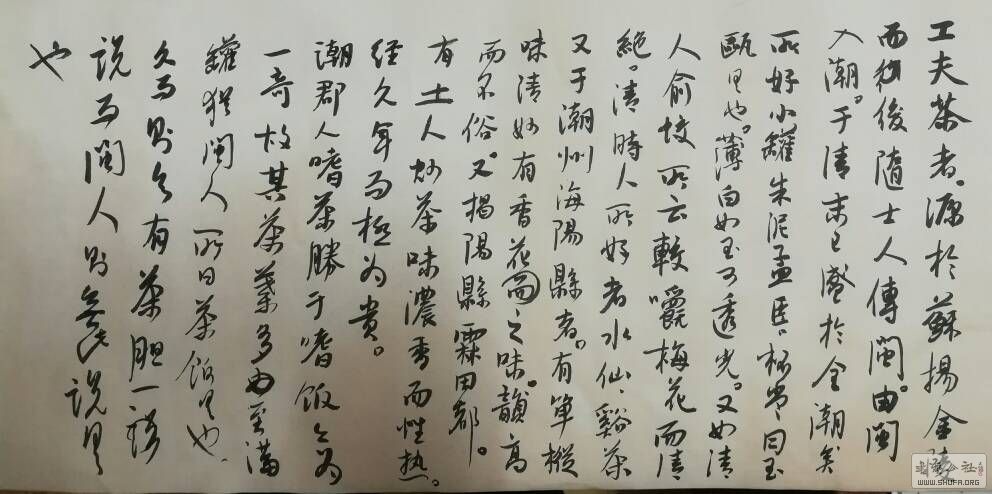 工夫茶者。源於蘇揚金陵
而後隨士人傳閩。由閩
入潮。于清末已盛於全潮矣
所好小罐朱泥孟臣、杯嘗曰玉
甌里也。薄白如玉可透光。又如清
人俞蛟所云較嚼梅花而清
絕。清時人所好者水仙、谿茶
又于潮州海陽縣者。有单樅
味清妙有香花之味。韻高
而不俗。又揭陽縣霖田都。
有土人炒茶味濃香而性热。
经久年而極为貴。
潮郡人嗜茶勝于嗜飯
一奇故其茶葉多由至滿
罐猶閩人所曰茶飯里也、
久而則有茶胆一
说而閩人則無此说
也
书法公社
WWW.SHUFA.ORG